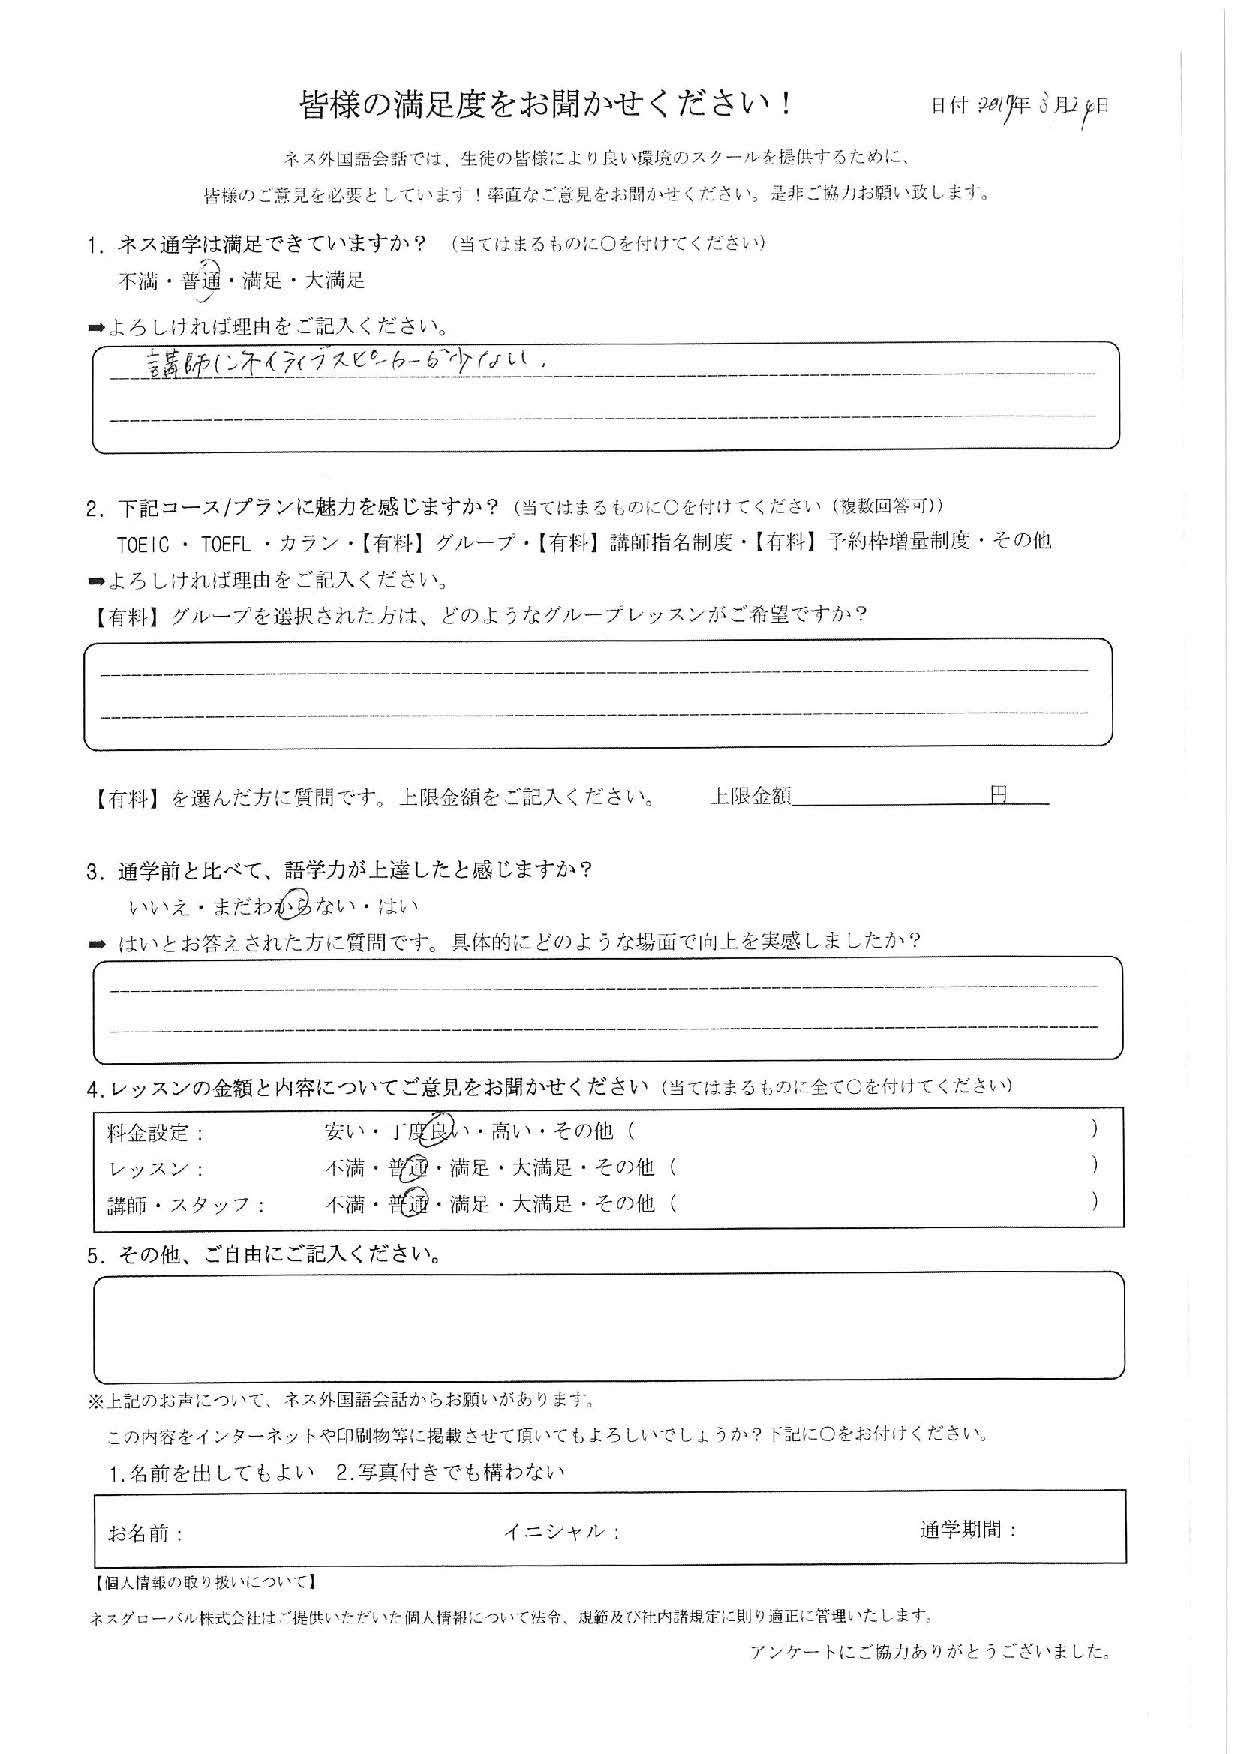 皆様の満足度をお聞かせください！
日付 2017年 3月24日
ネス外国語会話では、生徒の皆様により良い環境のスクールを提供するために、
皆様のご意見を必要としています！率直なご意見をお聞かせください。是非ご協力お願い致します。
1. ネス通学は満足できていますか？ （当てはまるものに〇を付けてください）
不満・普通・満足・大満足
➡よろしければ理由をご記入ください。
講師にネイティブスピーカーが少ない.
2. 下記コース/プランに魅力を感じますか？（当てはまるものに〇を付けてください（複数回答可））
TOEIC ・ TOEFL ・カラン・【有料】グループ・【有料】講師指名制度・【有料】予約枠増量制度・その他
➡よろしければ理由をご記入ください。
【有料】グループを選択された方は、どのようなグループレッスンがご希望ですか？
【有料】を選んだ方に質問です。上限金額をご記入ください。 上限金額 円
3. 通学前と比べて、語学力が上達したと感じますか？
いいえ・まだわからない・はい
➡ はいとお答えされた方に質問です。具体的にどのような場面で向上を実感しましたか？
4.レッスンの金額と内容についてご意見をお聞かせください（当てはまるものに全て〇を付けてください）
料金設定： 安い・丁度良い・高い・その他（ ）
レッスン： 不満・普通・満足・大満足・その他（ ）
講師・スタッフ： 不満・普通・満足・大満足・その他（ ）
5. その他、ご自由にご記入ください。
※上記のお声について、ネス外国語会話からお願いがあります。
この内容をインターネットや印刷物等に掲載させて頂いてもよろしいでしょうか？下記に〇をお付けください。
1.名前を出してもよい 2.写真付きでも構わない
お名前： イニシャル： 通学期間：
【個人情報の取り扱いについて】
ネスグローバル株式会社はご提供いただいた個人情報について法令、規範及び社内諸規定に則り適正に管理いたします。
アンケートにご協力ありがとうございました。